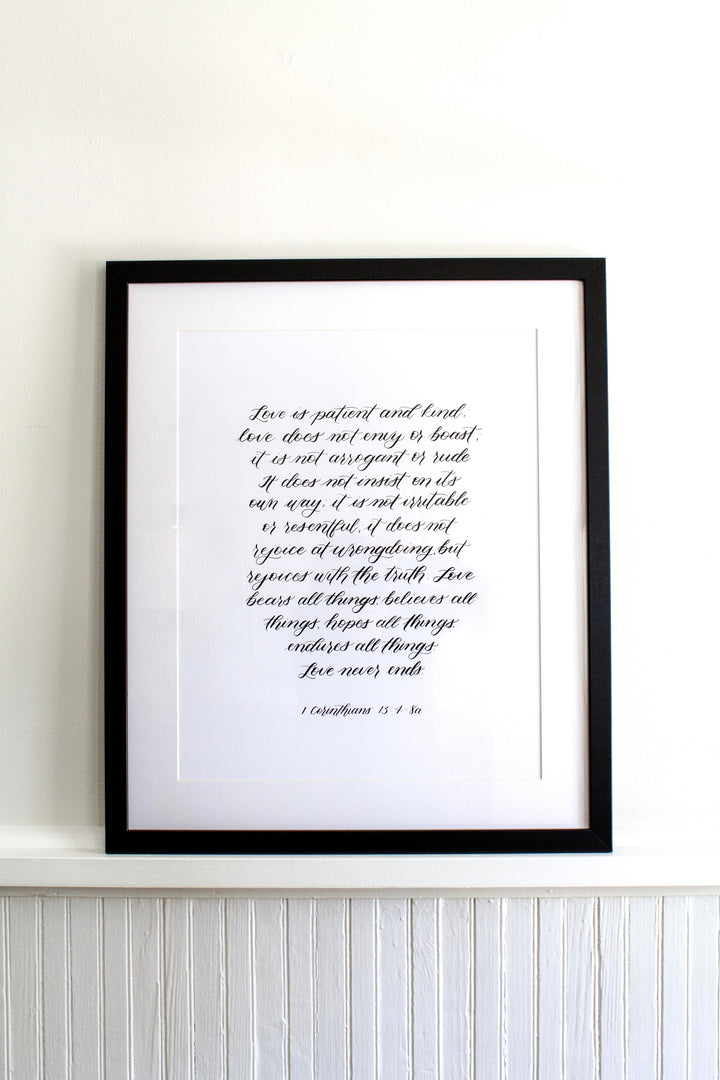 Love is patient and kind,
love does not envy or boast;
it is not arrogant or rude
It does not insist on its
own way; it is not irritable
or resentful, it does not
rejoice at wrongdoing, but
rejoices with the truth. Love
bears all things, believes all
things, hopes all things,
endures all things.
Love never ends.
1 Corinthians 13:4-8a